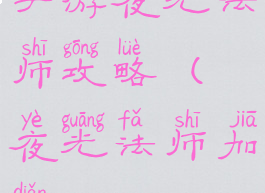 手游夜光法
shī gōng lüè
师攻略（
yè guāng fǎ shī jiā
夜光法师加
diǎn